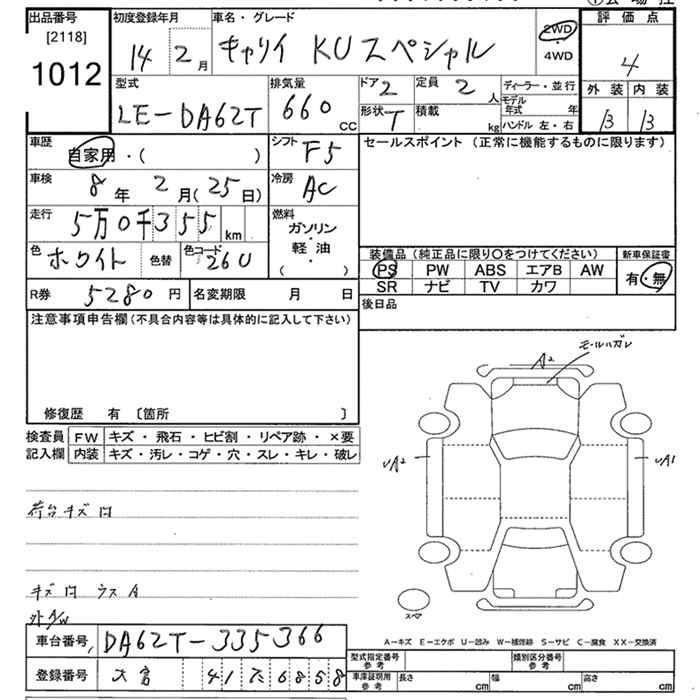 出品番号
[2118]
1012
初度登録年月
14 2月
車名・グレード
キャリイ KUスペシャル
2WD
・
4WD
評価点
4
外装 内装
B B
型式
LE-DA62T
排気量
660 cc
ドア 2
形状 T
定員 2 人
積載 kg
ディーラー・並行
モデル年式 年
ハンドル 左・右
車歴
自家用・( )
シフト F5
車検 8年 2月(25日)
冷房 AC
走行 5万0千355 km
燃料
ガソリン
・
軽・油
( )
色 ホワイト 色替 色コード 26U
R券 5280円 名変期限 月 日
セールスポイント (正常に機能するものに限ります)
装備品(純正品に限り○をつけてください) 新車保証書
PS PW ABS エアB AW 有・無
SR ナビ TV カワ
後日品
注意事項申告欄(不具合内容等は具体的に記入して下さい)
修復歴 有 〔箇所 〕
検査員 FW キズ・飛石・ヒビ割・リペア跡・×要
記入欄 内装 キズ・汚レ・コゲ・穴・スレ・キレ・破レ
モールハガレ
A2
A2
A1
スペア
荷台キズ凹
キズ凹 ウスA
外A/W
A-キズ E-エクボ U-凹み W-補修跡 S-サビ C-腐食 XX-交換済
車台番号 DA62T-335366
登録番号 大宮 41 6858
型式指定番号 参考 類別区分番号 参考
車庫証明用 参考 長さ cm 幅 cm 高さ cm